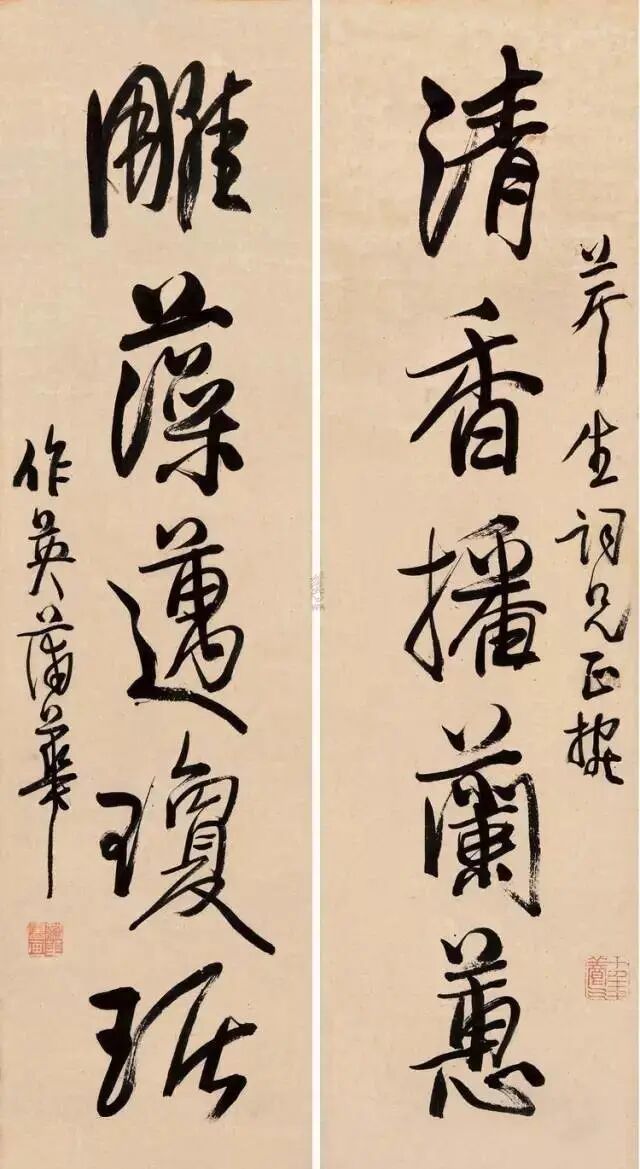 生詞兄正捥
清香播蘭蕙
雕藻邁瓊琚
作英蒲華